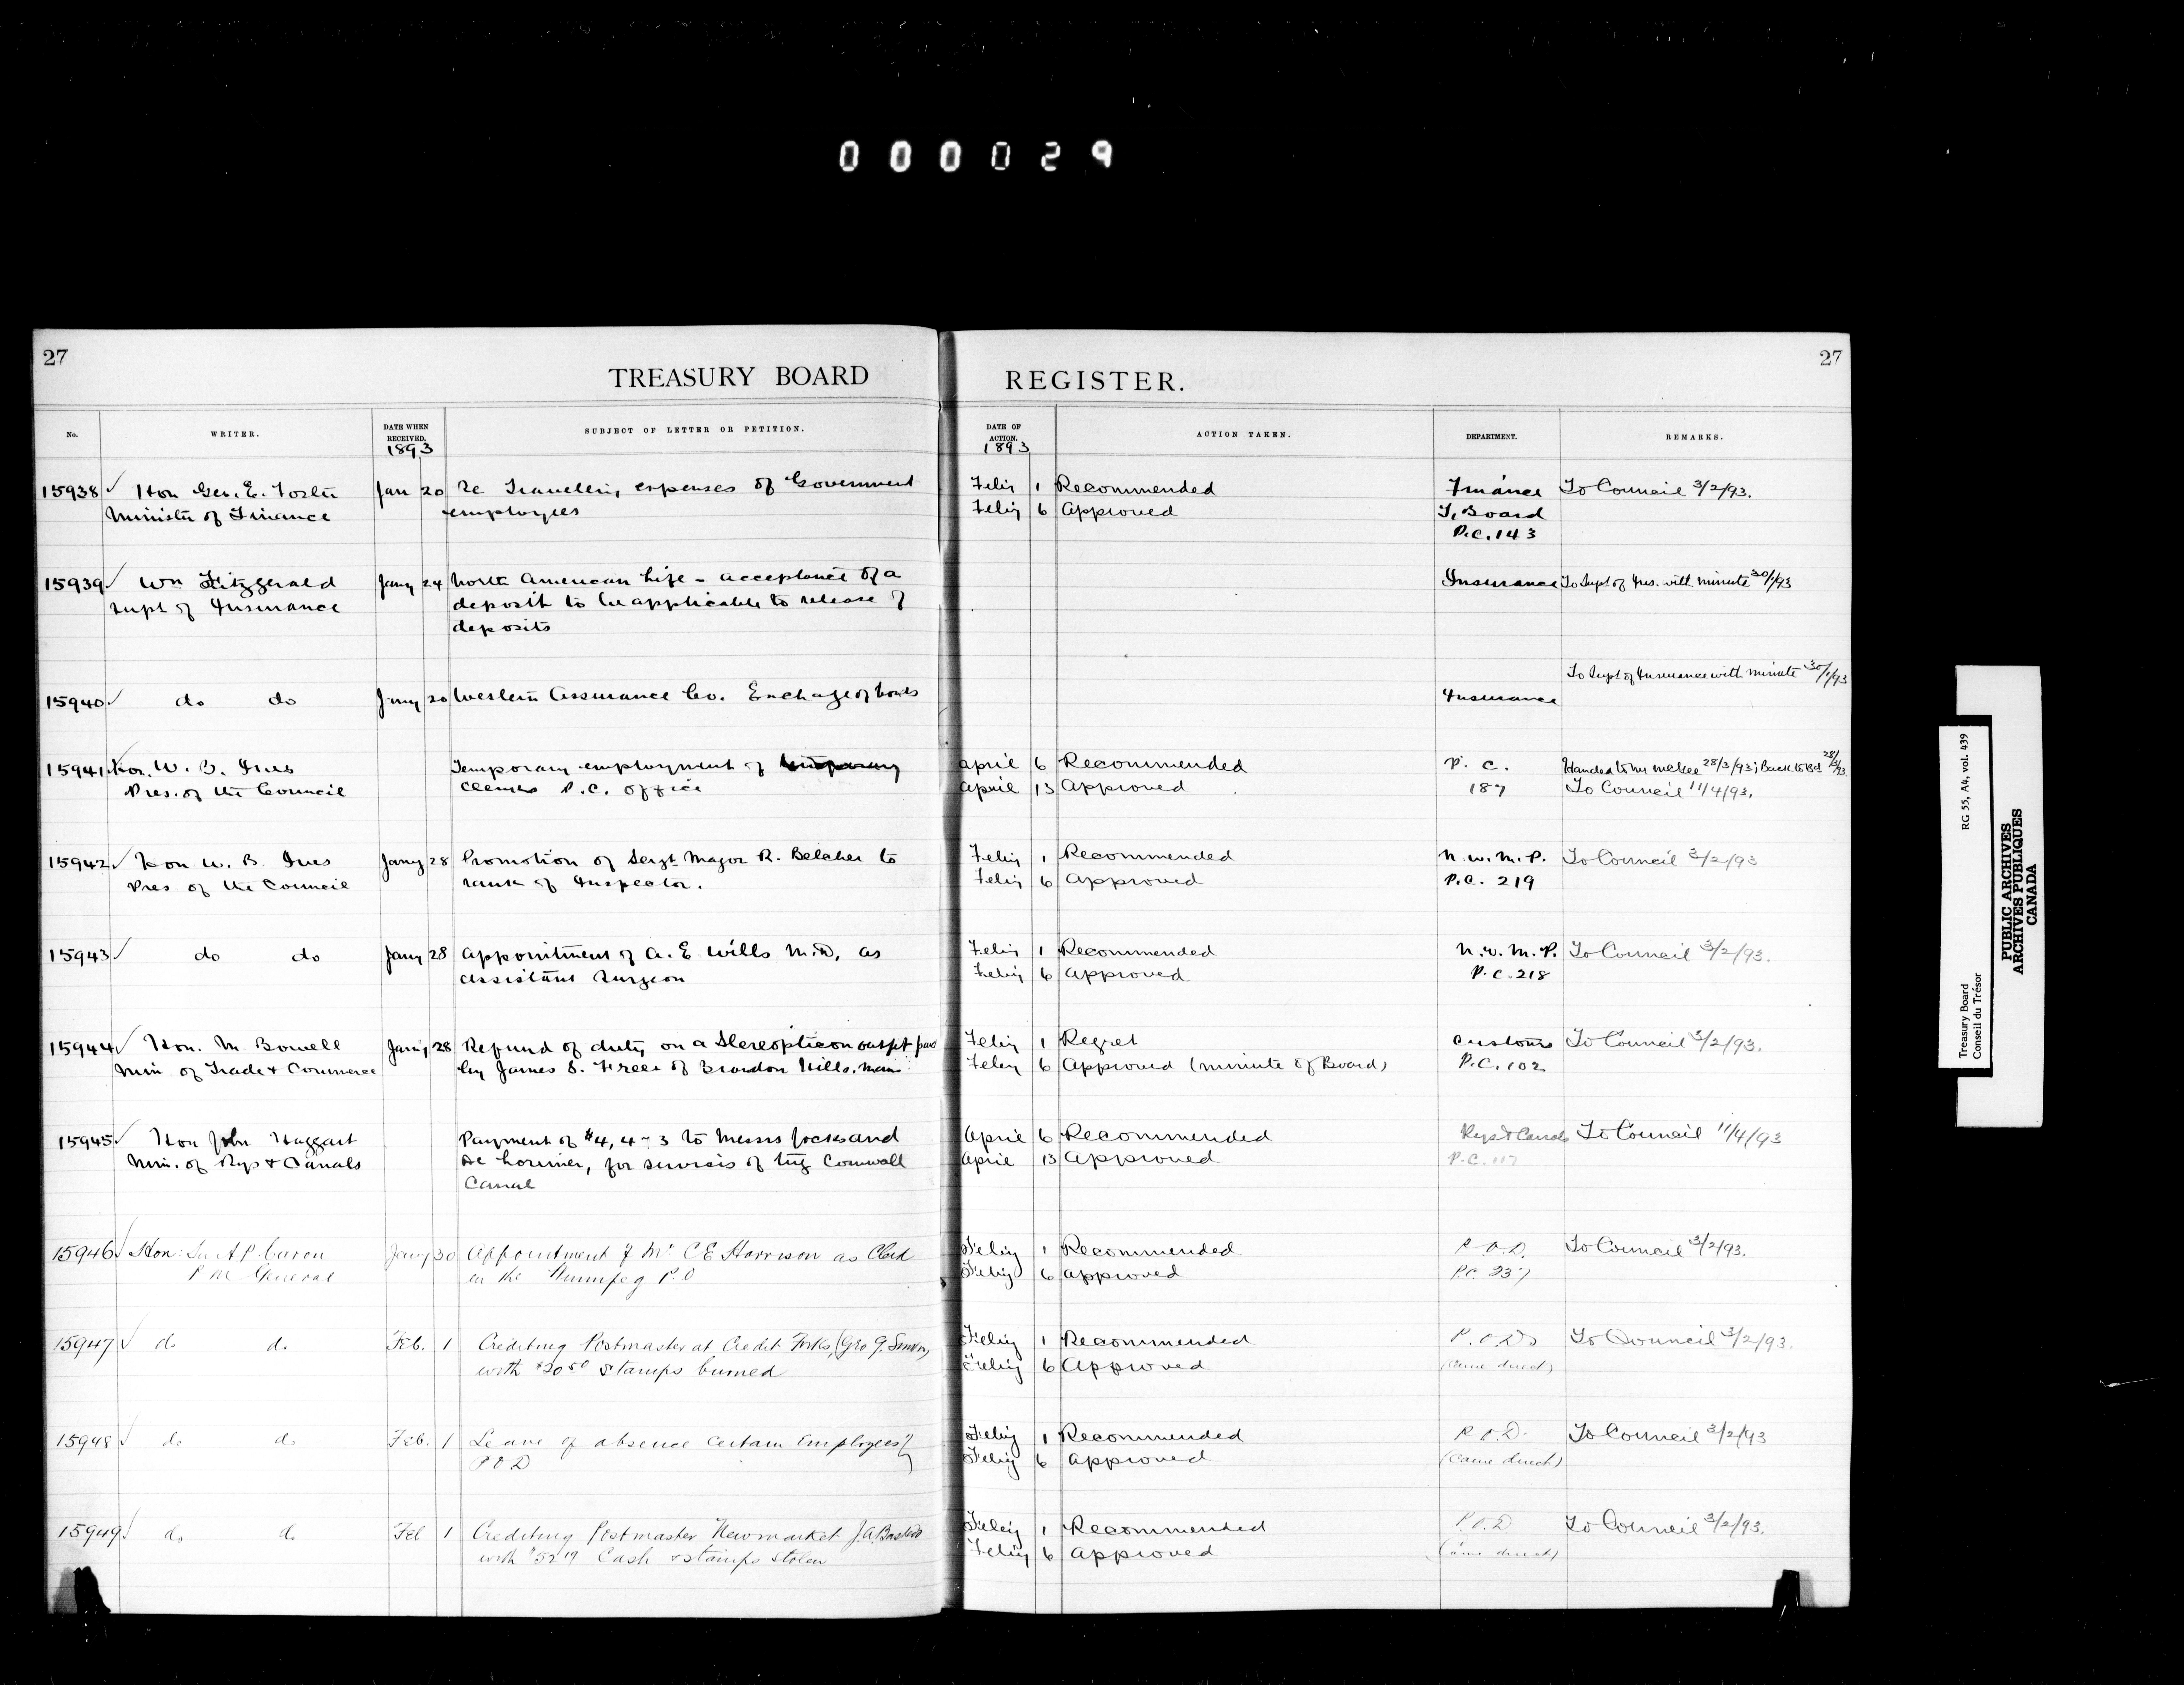 000029
27
27
TREASURY BOARD REGISTER.
No. WRITER. DATE WHEN RECEIVED. 1893 SUBJECT OF LETTER OR PETITION. DATE OF ACTION. 1893 ACTION TAKEN. DEPARTMENT. REMARKS.
15938 Hon Geo. E. Foster Jan 20 re Travelling expenses of Government Feby 1 Recommended Finance To Council 3/2/93.
Minister of Finance employees Feby 6 Approved T. Board
P.C. 143
15939 Wm Fitzgerald Jany 24 North American Life - acceptance of a Insurance To Supt of Ins. with minute 30/1/93
Supt of Insurance deposit to be applicable to release of
deposits
To Supt of Insurance with minute 30/1/93
15940 do do Jany 20 Western Assurance Co. Exchange of bonds Insurance
15941 Hon. W. B. Ives Temporary employment of temporary April 6 Recommended P. C. Handed to Mr McGee 28/3/93; Back to Bd 28/3/93
Pres. of the Council P.C. Office April 13 Approved 187 To Council 11/4/93.
15942 Hon W. B. Ives Jany 28 Promotion of Sergt Major R. Belcher to Feby 1 Recommended N. W. M. P. To Council 3/2/93
Pres of the Council rank of Inspector. Feby 6 Approved P.C. 219
15943 do do Jany 28 Appointment of A. E Wills M.D. as Feby 1 Recommended N. W. M. P. To Council 3/2/93.
Assistant Surgeon Feby 6 Approved P.C. 218
15944 Hon. M Bowell Jany 28 Refund of duty on a Stereopticon outfit paid Feby 1 Regret Customs To Council 3/2/93.
Min of Trade & Commerce by James S. of Brandon Hills, Man: Feby 6 Approved (minute of Board) P.C. 102
15945 Hon John Haggart Payment of to Messrs Jocks and April 6 Recommended Rys & Canals To Council 11/4/93
Min. of Rys & Canals De Lorimier, for services of tug Cornwall April 13 Approved P.C.
Canal
15946 Hon: Sir A P Caron Jany 30 Appointment of Mr C E Harrison as Clerk Feby 1 Recommended P. O. D. To Council 3/2/93.
P M General in the Winnipeg P.O Feby 6 Approved P.C. 237
15947 do do Feb. 1 Crediting Postmaster at Credit Forks, (Geo G. Simon) Feby 1 Recommended P. O. D To Council 3/2/93.
with $20 50 Stamps burned Feby 6 Approved (Came direct)
15948 do do Feb. 1 Leave of absence Certain Employees Feby 1 Recommended P. O. D. To Council 3/2/93
P O D Feby 6 Approved (Came direct)
15949 do do Feb 1 Crediting Postmaster Newmarket J. A. Feby 1 Recommended P. O. D To Council 3/2/93.
with Cash & Stamps Stolen Feby 6 Approved (Came direct)
Treasury Board RG 55, A4, vol. 439
Conseil du Trésor
PUBLIC ARCHIVES
ARCHIVES PUBLIQUES
CANADA